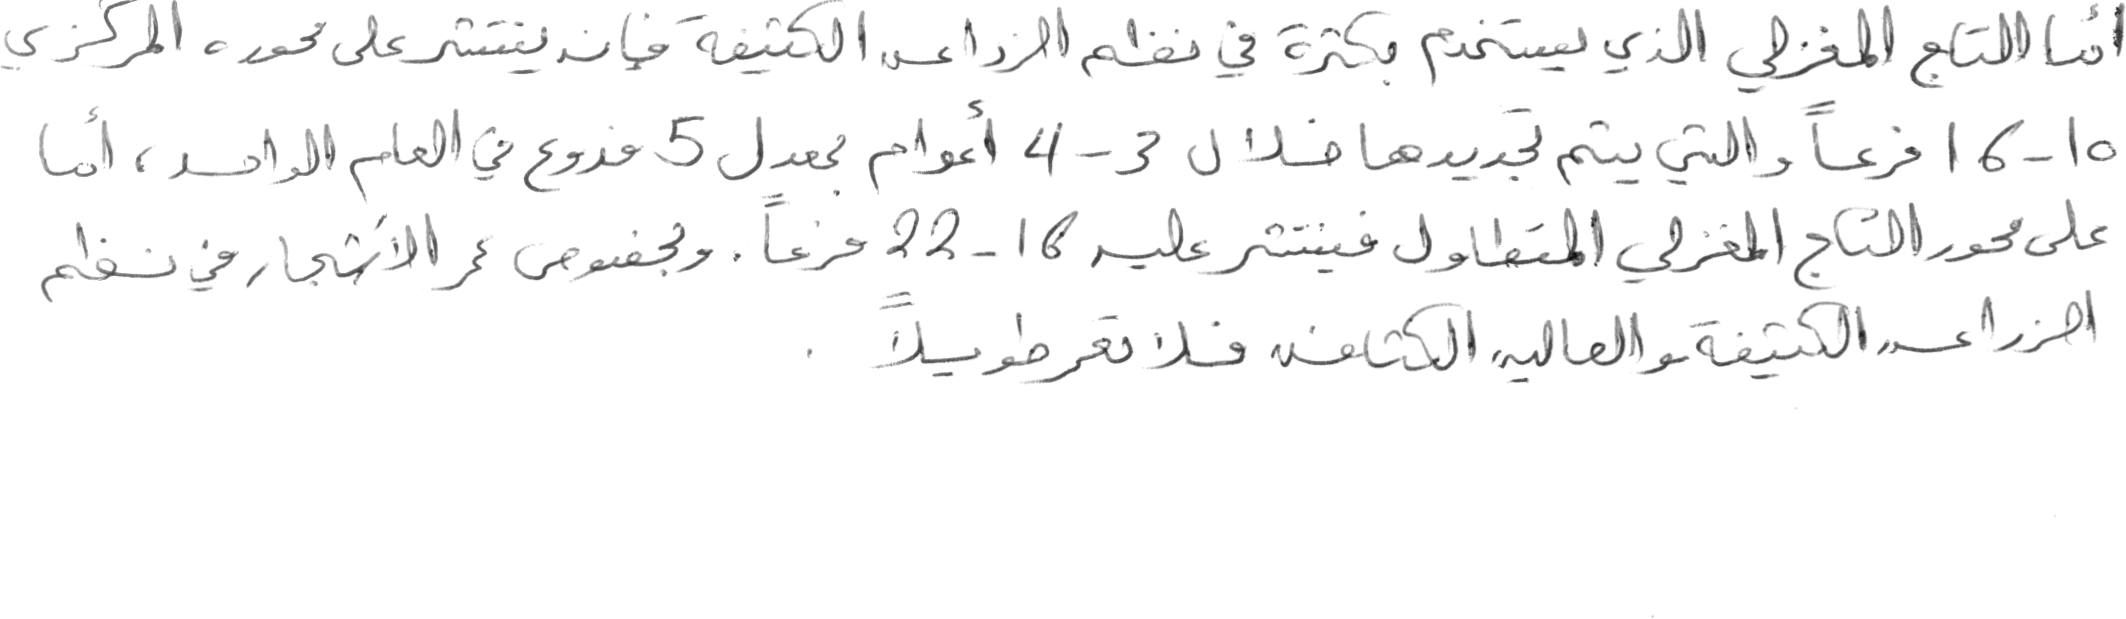 أما التاج المغزلي الذي يستخدم بكثرة في نظم الزراعه الكثيفة فإنه ينتشر على محوره المركزي
10-16 فرعاً والتي يتم تجديدها خلال 3-4 أعوام بمعدل 5 فروع في العام الواحد، أما
على محور التاج المغزلي المتطاول فينتشر عليه 16-22 فرعاً. وبخصوص عمر الأشجار في نظم
الزراعه الكثيفة والعاليه الكثافه فلا تعمر طويلاً .